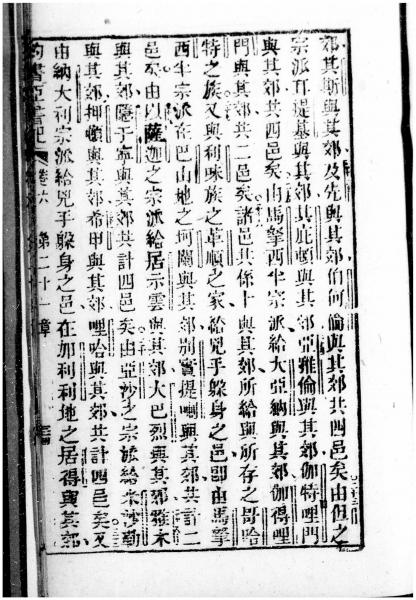 郊其斯與其郊及先與其郊伯何倫與其郊共四邑矣由但之
宗派耳提基與其郊其庇頓與其郊亞雅倫與其郊伽特哩門
與其郊共四邑矣由馬拏西半宗派給大亞納與其郊伽得哩
門與其郊共二邑矣諸邑共係十與其郊所給與所存之哥哈
特之族又與利味族之革順之家給兇手躲身之邑卽由馬拏
西半宗派在巴山地之坷關與其郊別實提喇與其郊共計二
邑矣由以薩迦之宗派給居示雲與其郊大巴烈與其郊雅末
與其郊隱于寧與其郊共計四邑矣由亞沙之宗派給米沙勒
與其郊押頓與其郊希甲與其郊哩哈與其郊共計四邑矣又
由納大利宗派給兇手躲身之邑在加利利地之居得與其郊
約書亞書記 卷六 第二十一章